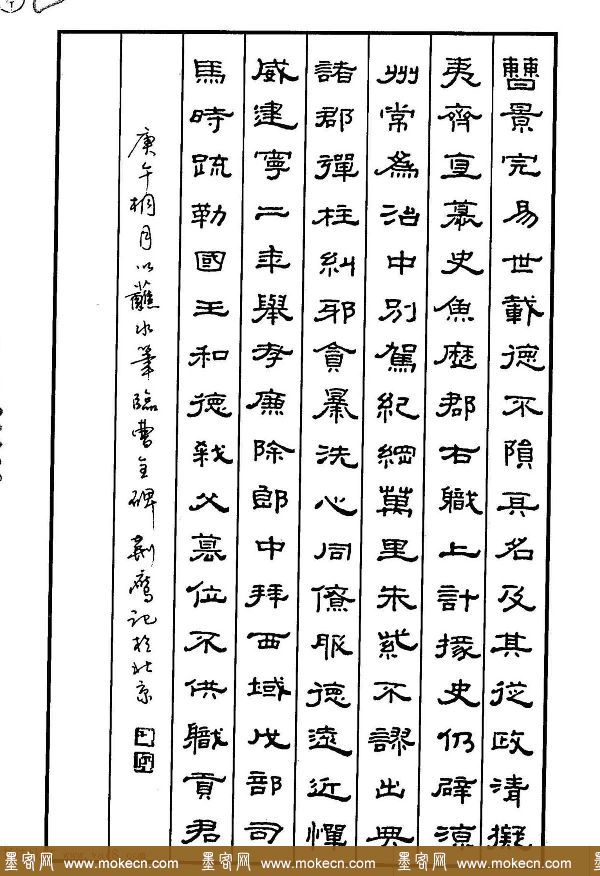 曹景完易世載德不隕其名及其從政清擬
夷齊直慕史魚歷郡右職上計掾史仍辟涼
州常為治中別駕紀綱萬里朱紫不謬出典
諸郡彈枉糾邪貪暴洗心同僚服德遠近憚
威建寧二年舉孝廉除郎中拜西域戊部司
馬時疏勒國王和德弒父篡位不供職貢君
庚午桐月以蘸水筆臨曹全碑 記於北京
墨客网 www.mokecn.com 墨客网 www.mokecn.com 墨客网 www.mokecn.com